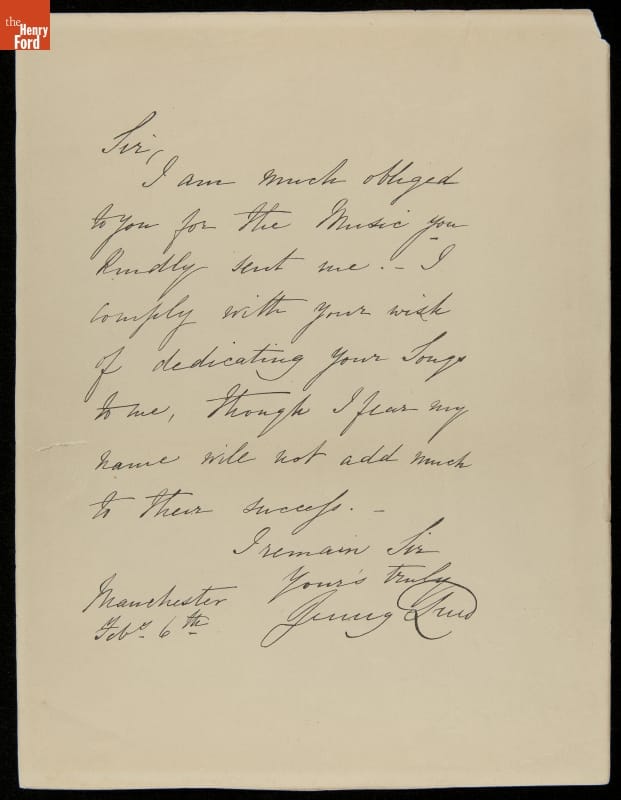 the
Henry
Ford
Sir,
I am much obliged
to you for the Music you
kindly sent me. – I
comply with your wish
of dedicating your Songs
to me, though I fear my
name will not add much
to their success. –
I remain Sir
Your's truly
Jenny Lind
Manchester
Feby 6th